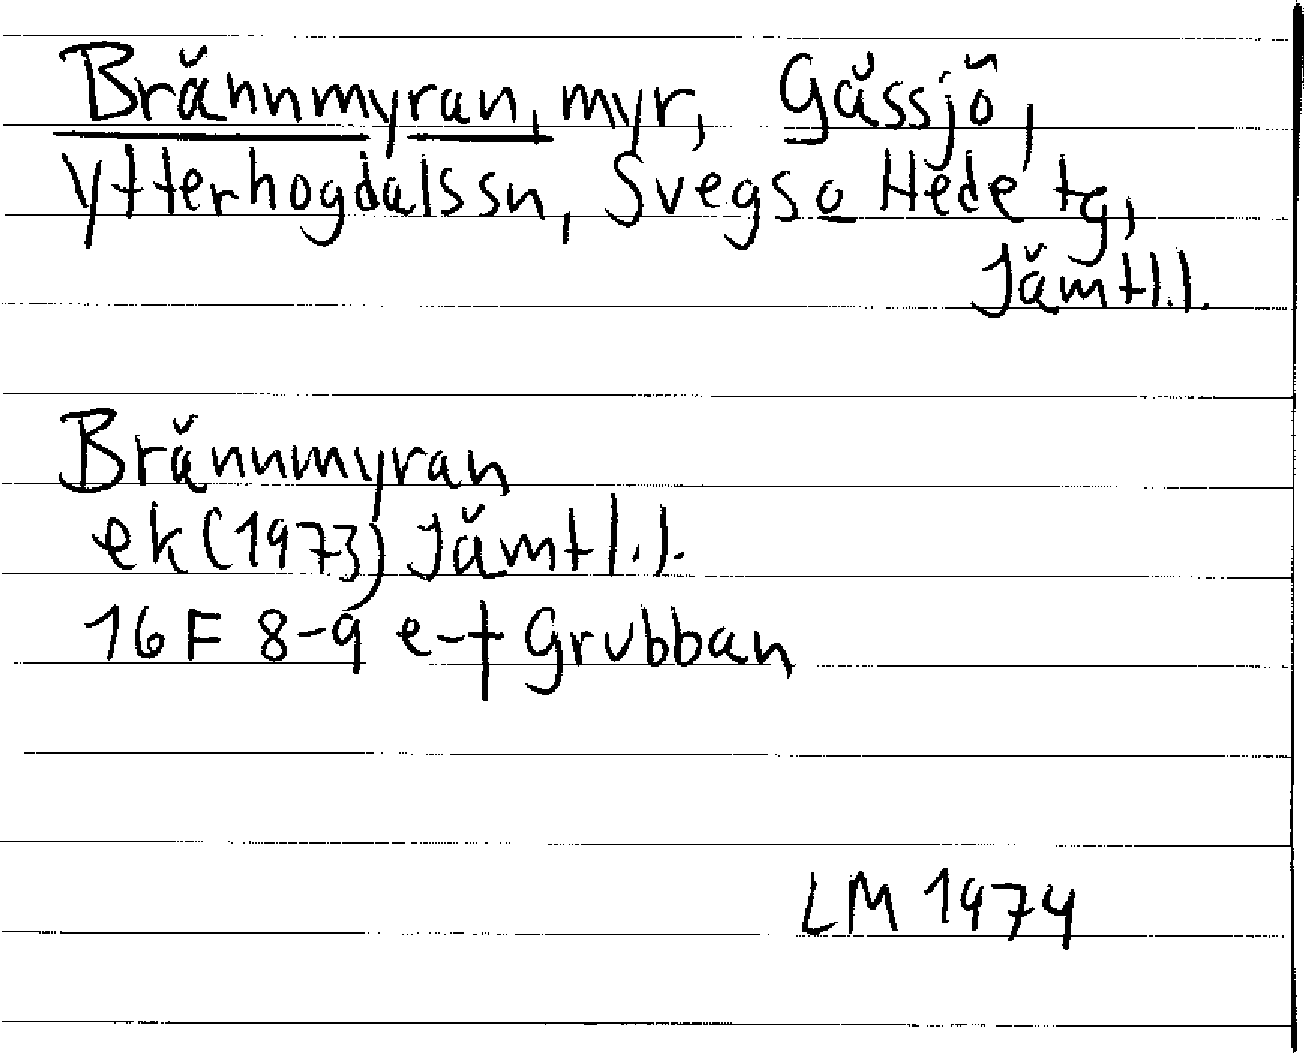 Brännmyran, myr, Gåssjö,
Ytterhogdals sn, Svegs o Hede tg,
Jämtl.l.
Brännmyran
ek (1973) Jämtl.l.
16 F 8-9 e-f Grubban
LM 1974